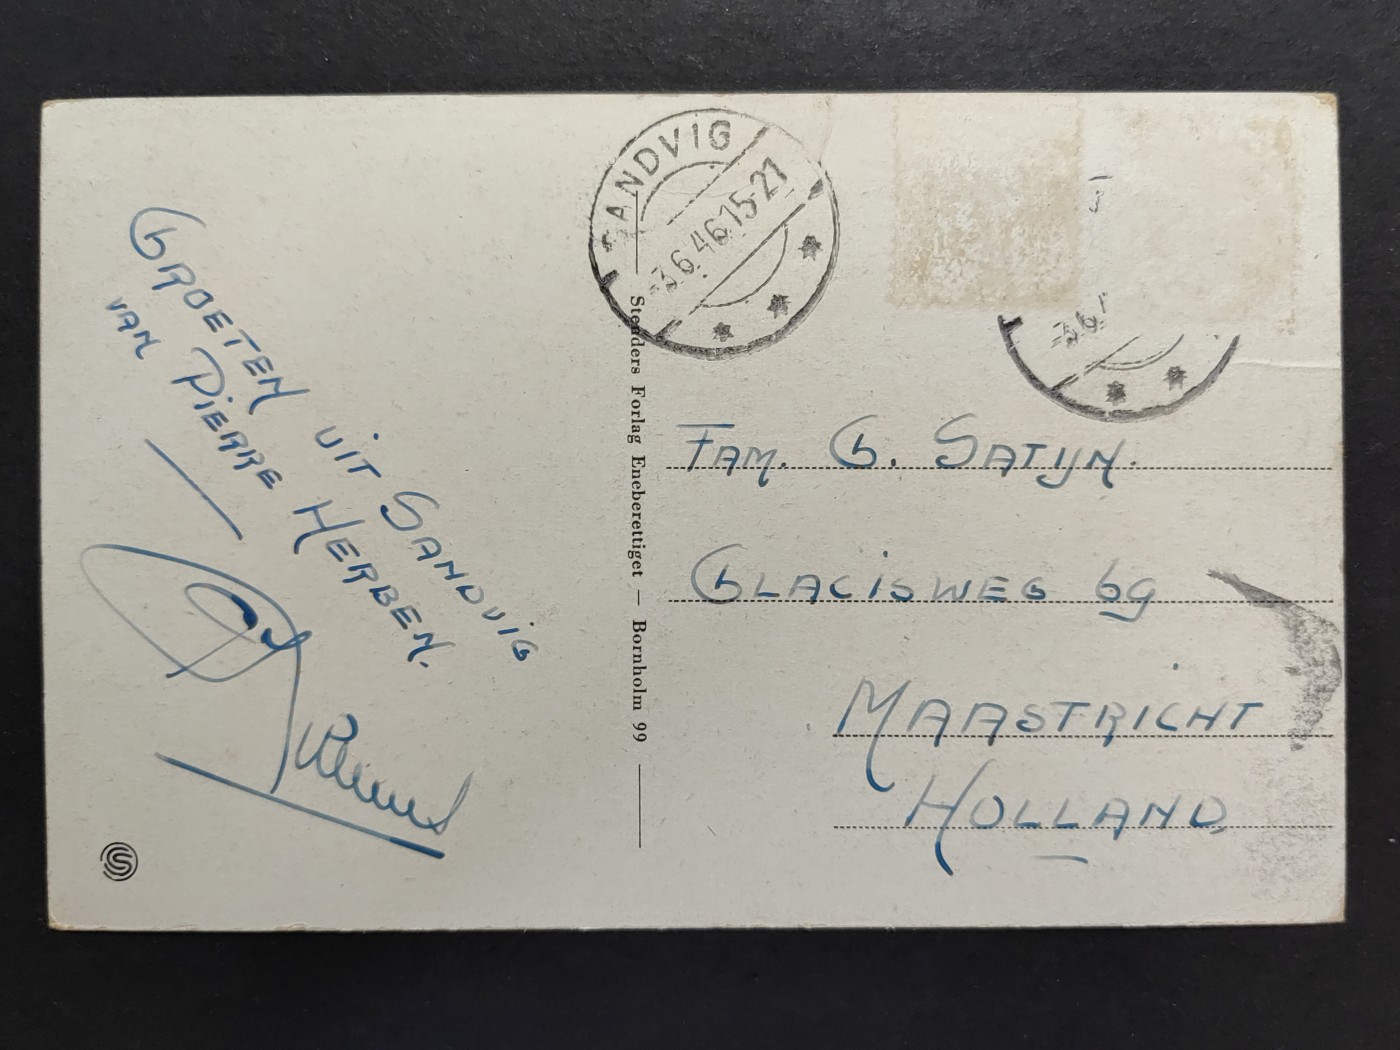 SANDVIG
-3.6.46.15-21
-3.6.
GROETEN UIT SANDVIG
VAN PIERRE HERBEN.
Stenders Forlag Eneberettiget — Bornholm 99
FAM. G. SATIJN.
GLACISWEG 69
MAASTRICHT
HOLLAND